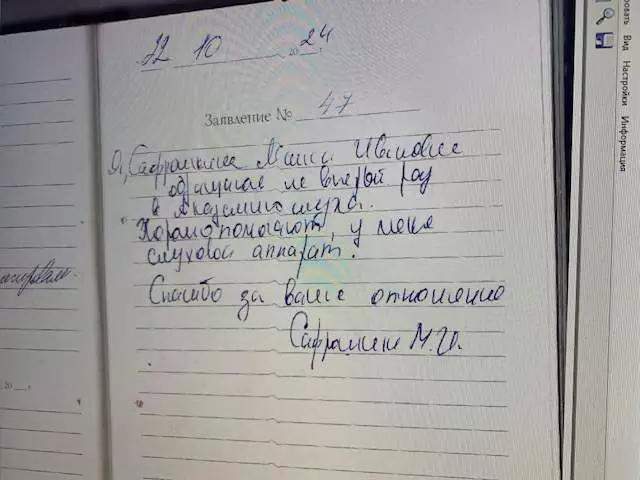 22 10 2024
Заявление № 47
Я, Сафронкине Мания Ивановне
обращаюсь не впервой раз
в Академию слуха.
Хорошо помогают, у меня
слуховой аппарат.
Спасибо за ваше отношение
М.И.
20
Вид Настройки Информация